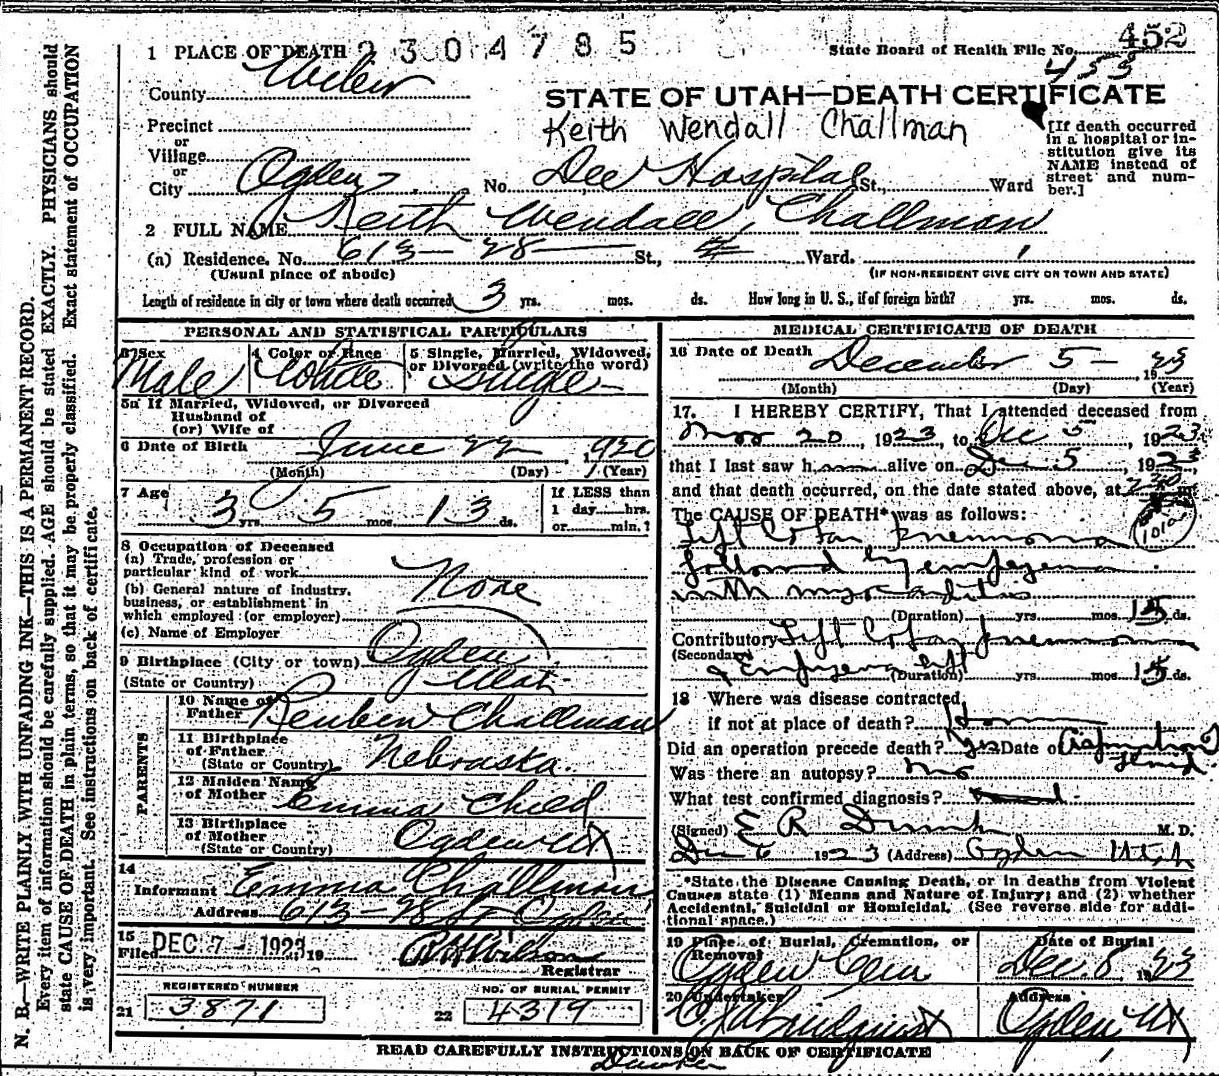 1 PLACE OF DEATH 2304785 State Board of Health File No. 452
453
County Weber
STATE OF UTAH—DEATH CERTIFICATE
Precinct
Keith Wendall Challman
or
Village
or
City Ogden, No. Dee Hospital St., Ward
[If death occurred in a hospital or in-
stitution give its
NAME instead of
street and num-
ber.]
2 FULL NAME Keith Wendall Challman
(a) Residence. No. 613-28 St., Ward.
(Usual place of abode) (IF NON-RESIDENT GIVE CITY OR TOWN AND STATE)
Length of residence in city or town where death occurred 3 yrs. mos. ds. How long in U. S., if of foreign birth? yrs. mos. ds.
PERSONAL AND STATISTICAL PARTICULARS
3 Sex 4 Color or Race 5 Single, Married, Widowed,
or Divorced (write the word)
Male White Single
5a If Married, Widowed, or Divorced
Husband of
(or) Wife of
6 Date of Birth June 22, 1920
(Month) (Day) (Year)
7 Age 3 yrs. 5 mos. 13 ds.
If LESS than
1 day hrs.
or min.?
8 Occupation of Deceased
(a) Trade, profession or
particular kind of work None
(b) General nature of industry,
business, or establishment in
which employed (or employer)
(c) Name of Employer
9 Birthplace (City or town) Ogden
(State or Country) Utah
PARENTS
10 Name of
Father Reuben Challman
11 Birthplace
of Father
(State or Country) Nebraska.
12 Maiden Name
of Mother Emma Child
13 Birthplace
of Mother
(State or Country) Ogden Ut
14
Informant Emma Challman
Address 613-28 St Ogden
15
Filed DEC 7 - 1923, 19 Wilson
Registrar
REGISTERED NUMBER NO. OF BURIAL PERMIT
21 3871 22 4319
MEDICAL CERTIFICATE OF DEATH
16 Date of Death December 5- 1923
(Month) (Day) (Year)
17. I HEREBY CERTIFY, That I attended deceased from
Nov 20, 1923, to Dec 5, 1923,
that I last saw h alive on Dec 5, 192
and that death occurred, on the date stated above, at 2
The CAUSE OF DEATH* was as follows:
Left Lobar Pneumonia
followed by empyema
with myocarditis
(Duration) yrs. mos. 15 ds.
Contributory Left Lobar pneumonia
(Secondary)
& Empyema left
(Duration) yrs. mos. 15 ds.
18 Where was disease contracted,
if not at place of death? Home
Did an operation precede death? yes Date of Aspiration
fluid
Was there an autopsy? no
What test confirmed diagnosis?
(Signed) E R M. D.
Dec 6 1923 (Address) Ogden Utah
*State the Disease Causing Death, or in deaths from Violent
Causes state (1) Means and Nature of Injury; and (2) whether
Accidental, Suicidal or Homicidal. (See reverse side for addi-
tional space.)
19 Place of Burial, Cremation, or
Removal Date of Burial
Ogden Cem Dec. 8 1923
20 Undertaker Address
Ogden Ut
READ CAREFULLY INSTRUCTIONS ON BACK OF CERTIFICATE
N. B.—WRITE PLAINLY WITH UNFADING INK—THIS IS A PERMANENT RECORD.
Every item of information should be carefully supplied. AGE should be stated EXACTLY. PHYSICIANS should
state CAUSE OF DEATH in plain terms, so that it may be properly classified. Exact statement of OCCUPATION
is very important. See instructions on back of certificate.